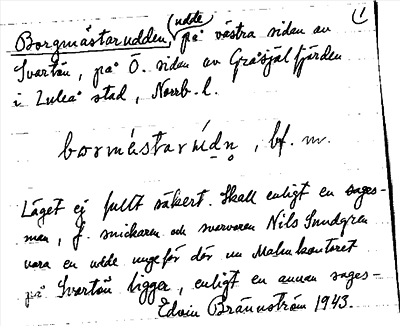 (udde 1
Borgmästarudden, på västra sidan av
Svartön, på Ö. sidan av Gråsjälfjärden
i Luleå stad, Norrb. l.
bormástarúdn, bf. m.
Läget ej fullt säkert. Skall enligt en sages-
man, f. snickaren och svarvaren Nils Sundgren
vara en udde ungefär där nu Malmkontoret
på Svartön ligger, enligt en annan sages-
Edvin Brännström 1943.